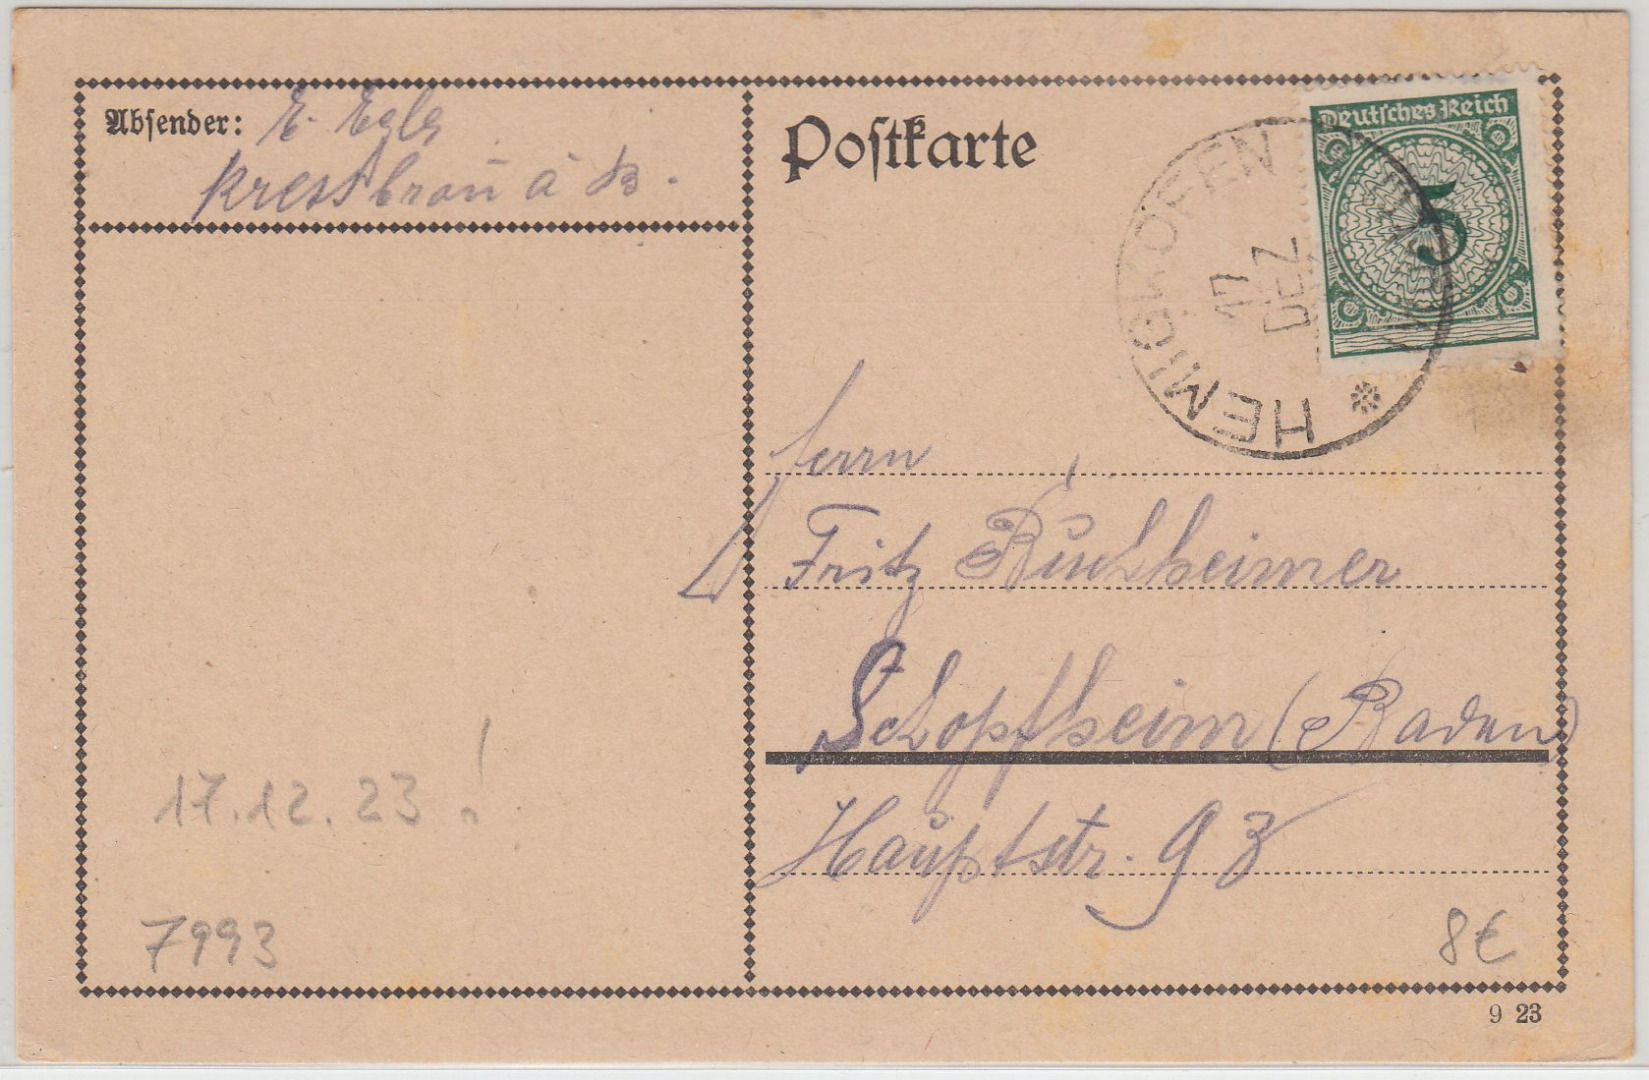 Absender: E. Egle
Kressbronn a B.
Postkarte
Deutsches Reich
5
HEMIGKOFEN
17
DEZ
Herrn
Fritz Buchheimer
Schopfheim (Baden)
Hauptstr. 93
17.12.23!
7993
8€
9 23